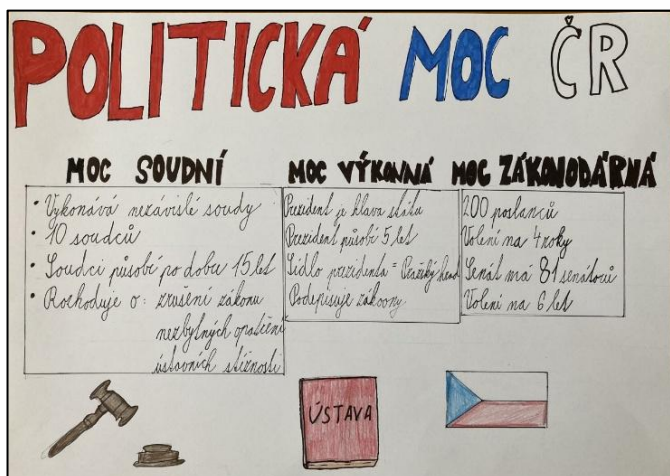 POLITICKÁ MOC ČR
MOC SOUDNÍ
• Vykonává nezávislé soudy
• 10 soudců
• Soudci působí po dobu 15 let
• Rozhoduje o: zrušení zákonu
nezbytných opatření
ústavních stížnosti
MOC VÝKONNÁ
Prezident je hlava státu
Prezident působí 5 let
Sídlo prezidenta = Pražský hrad
Podepisuje zákoony
MOC ZÁKONODÁRNÁ
200 poslanců
Volení na 4 roky
Senát má 81 senátorů
Volení na 6 let
ÚSTAVA